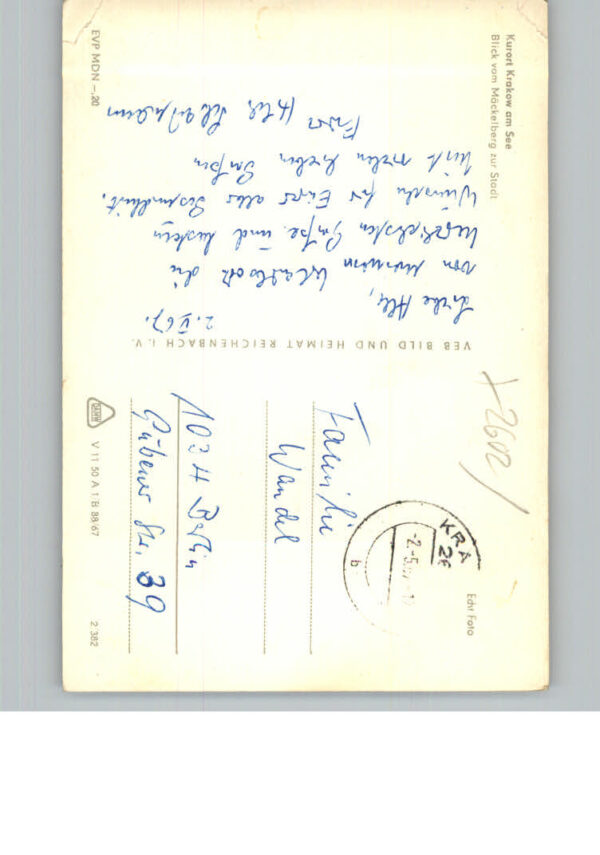 Kurort Krakow am See
Blick vom Möckelberg zur Stadt
2. V 67.
Liebe
von unserem die
herzlichsten Grüße und besten
Wünsche für Eure alles Gesundheit.
Mit vielen lieben Grüßen
EVP MDN -,20
VEB BILD UND HEIMAT REICHENBACH i. V.
X2602/
KRA
26
-2.-5.
b
Echt Foto
Familie
Wandel
1034 Berlin
Gubener Str. 39
V 11 50 A 1 B 88/67
2 382